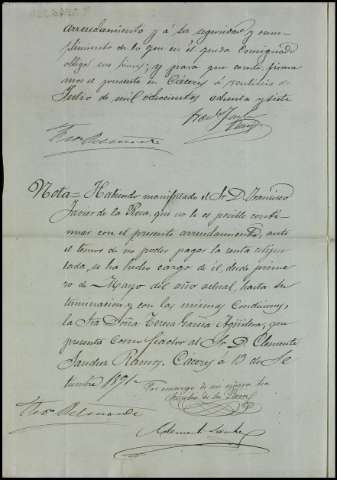 arrendamiento y á la seguridad y cum-
plimiento de lo que en él queda consignado
obliga sus bienes; y para que conste, firma-
mos el presente en Cáceres á veintiseis de
Julio de mil ochocientos ochenta y siete
Nota = Habiendo manifestado el Sr. D. Francisco
Javier de la Rosa, que no le es posible conti-
nuar con el presente arrendamiento, ante
el temor de no poder pagar la renta estipu-
lada, se ha hecho cargo de él, desde prime-
ro de Mayo del año actual, hasta su
terminación y con las mismas condiciones,
la Sra. Doña Teresa García Agúndez, que
presenta como fiador al Sr. D. Clemente
Sanchez Ramos. Cáceres á 13 de Se-
tiembre 1891
Por encargo de mi esposa
Clemente Sanchez